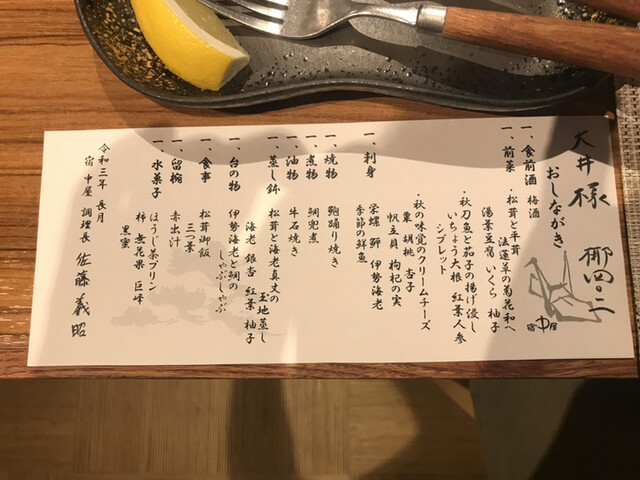 大井様
椰四〇二
おしながき
宿 中 屋
一、食前酒 梅酒
一、前菜 ・松茸と平茸
法蓮草の菊花和へ
湯葉豆富 いくら 柚子
・秋刀魚と茄子の揚げ浸し
いちょう大根 紅葉人参
シブレット
・秋の味覚のクリームチーズ
栗 胡桃 杏子
帆立貝 枸杞の実
一、刺身
栄螺 鮃 伊勢海老
季節の鮮魚
一、焼物 鮑踊り焼き
一、煮物 鯛兜煮
一、油物 牛石焼き
一、蒸し鉢 松茸と海老真丈の
玉地蒸し
海老 銀杏 紅葉 柚子
一、台の物 伊勢海老と鯛の
しゃぶしゃぶ
一、食事 松茸御飯
三つ葉
一、留椀 赤出汁
一、水菓子 ほうじ茶プリン
柿 無花果 巨峰
黒蜜
令和三年 長月
宿 中屋 調理長 佐藤義昭